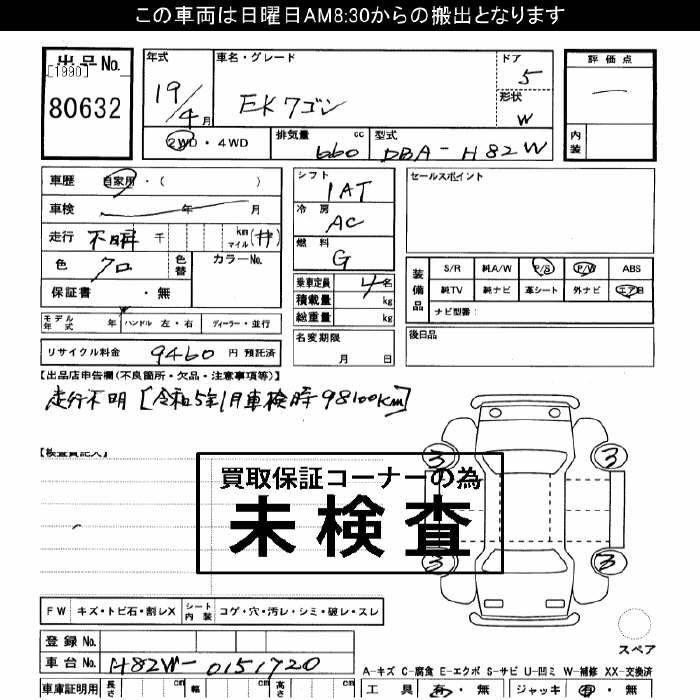 この車両は日曜日AM8:30からの搬出となります
出品No.
[1990]
80632
年式 19/4月
車名・グレード EKワゴン
ドア 5
形状 W
評価点 ー
内装
2WD・4WD
排気量 660 cc
型式 DBA-H82W
車歴 自家用・( )
車検 年 月
走行 不明 千 km マイル (#)
色 クロ 色替 カラーNo.
保証書 ・無
モデル年式 年 ハンドル 左・右 ディーラー・並行
リサイクル料金 9460 円 預託済
シフト 1AT
冷房 AC
燃料 G
乗車定員 4名
積載量 kg
総重量 kg
名変期限 月 日
セールスポイント
装備品
S/R 純A/W P/S P/W ABS
純TV 純ナビ 革シート 外ナビ エアB
ナビ型番:
後日品
【出品店申告欄(不良箇所・欠品・注意事項等)】
走行不明[令和5年1月車検時98100km]
【検査員記入】
買取保証コーナーの為
未検査
3 3
3 3
スペア
FW キズ・トビ石・割レX シート内装 コゲ・穴・汚レ・シミ・破レ・スレ
登録No.
車台No. H82W-0151720
A-キズ C-腐食 E-エクボ S-サビ U-凹ミ W-補修 XX-交換済
車庫証明用 長さ cm 幅 cm 高さ cm
工具 有・無 ジャッキ 有・無